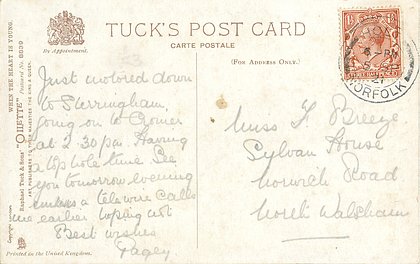 TUCK'S POST CARD
CARTE POSTALE
By Appointment.
(FOR ADDRESS ONLY.)
WHEN THE HEART IS YOUNG.
Raphael Tuck & Sons' "OILETTE" Postcard No. 8639
ART PUBLISHERS TO THEIR MAJESTIES THE KING & QUEEN.
Just motored down
to Sherringham,
going on to Cromer
at 2.30 pm. Having
a top hole time See
you tomorrow evening
unless a telewire calls
me earlier hoping not
Best wishes
Pagey
Printed in the United Kingdom.
NORFOLK
21
Miss F Breeze
Sylvan House
Norwich Road
North Walsham